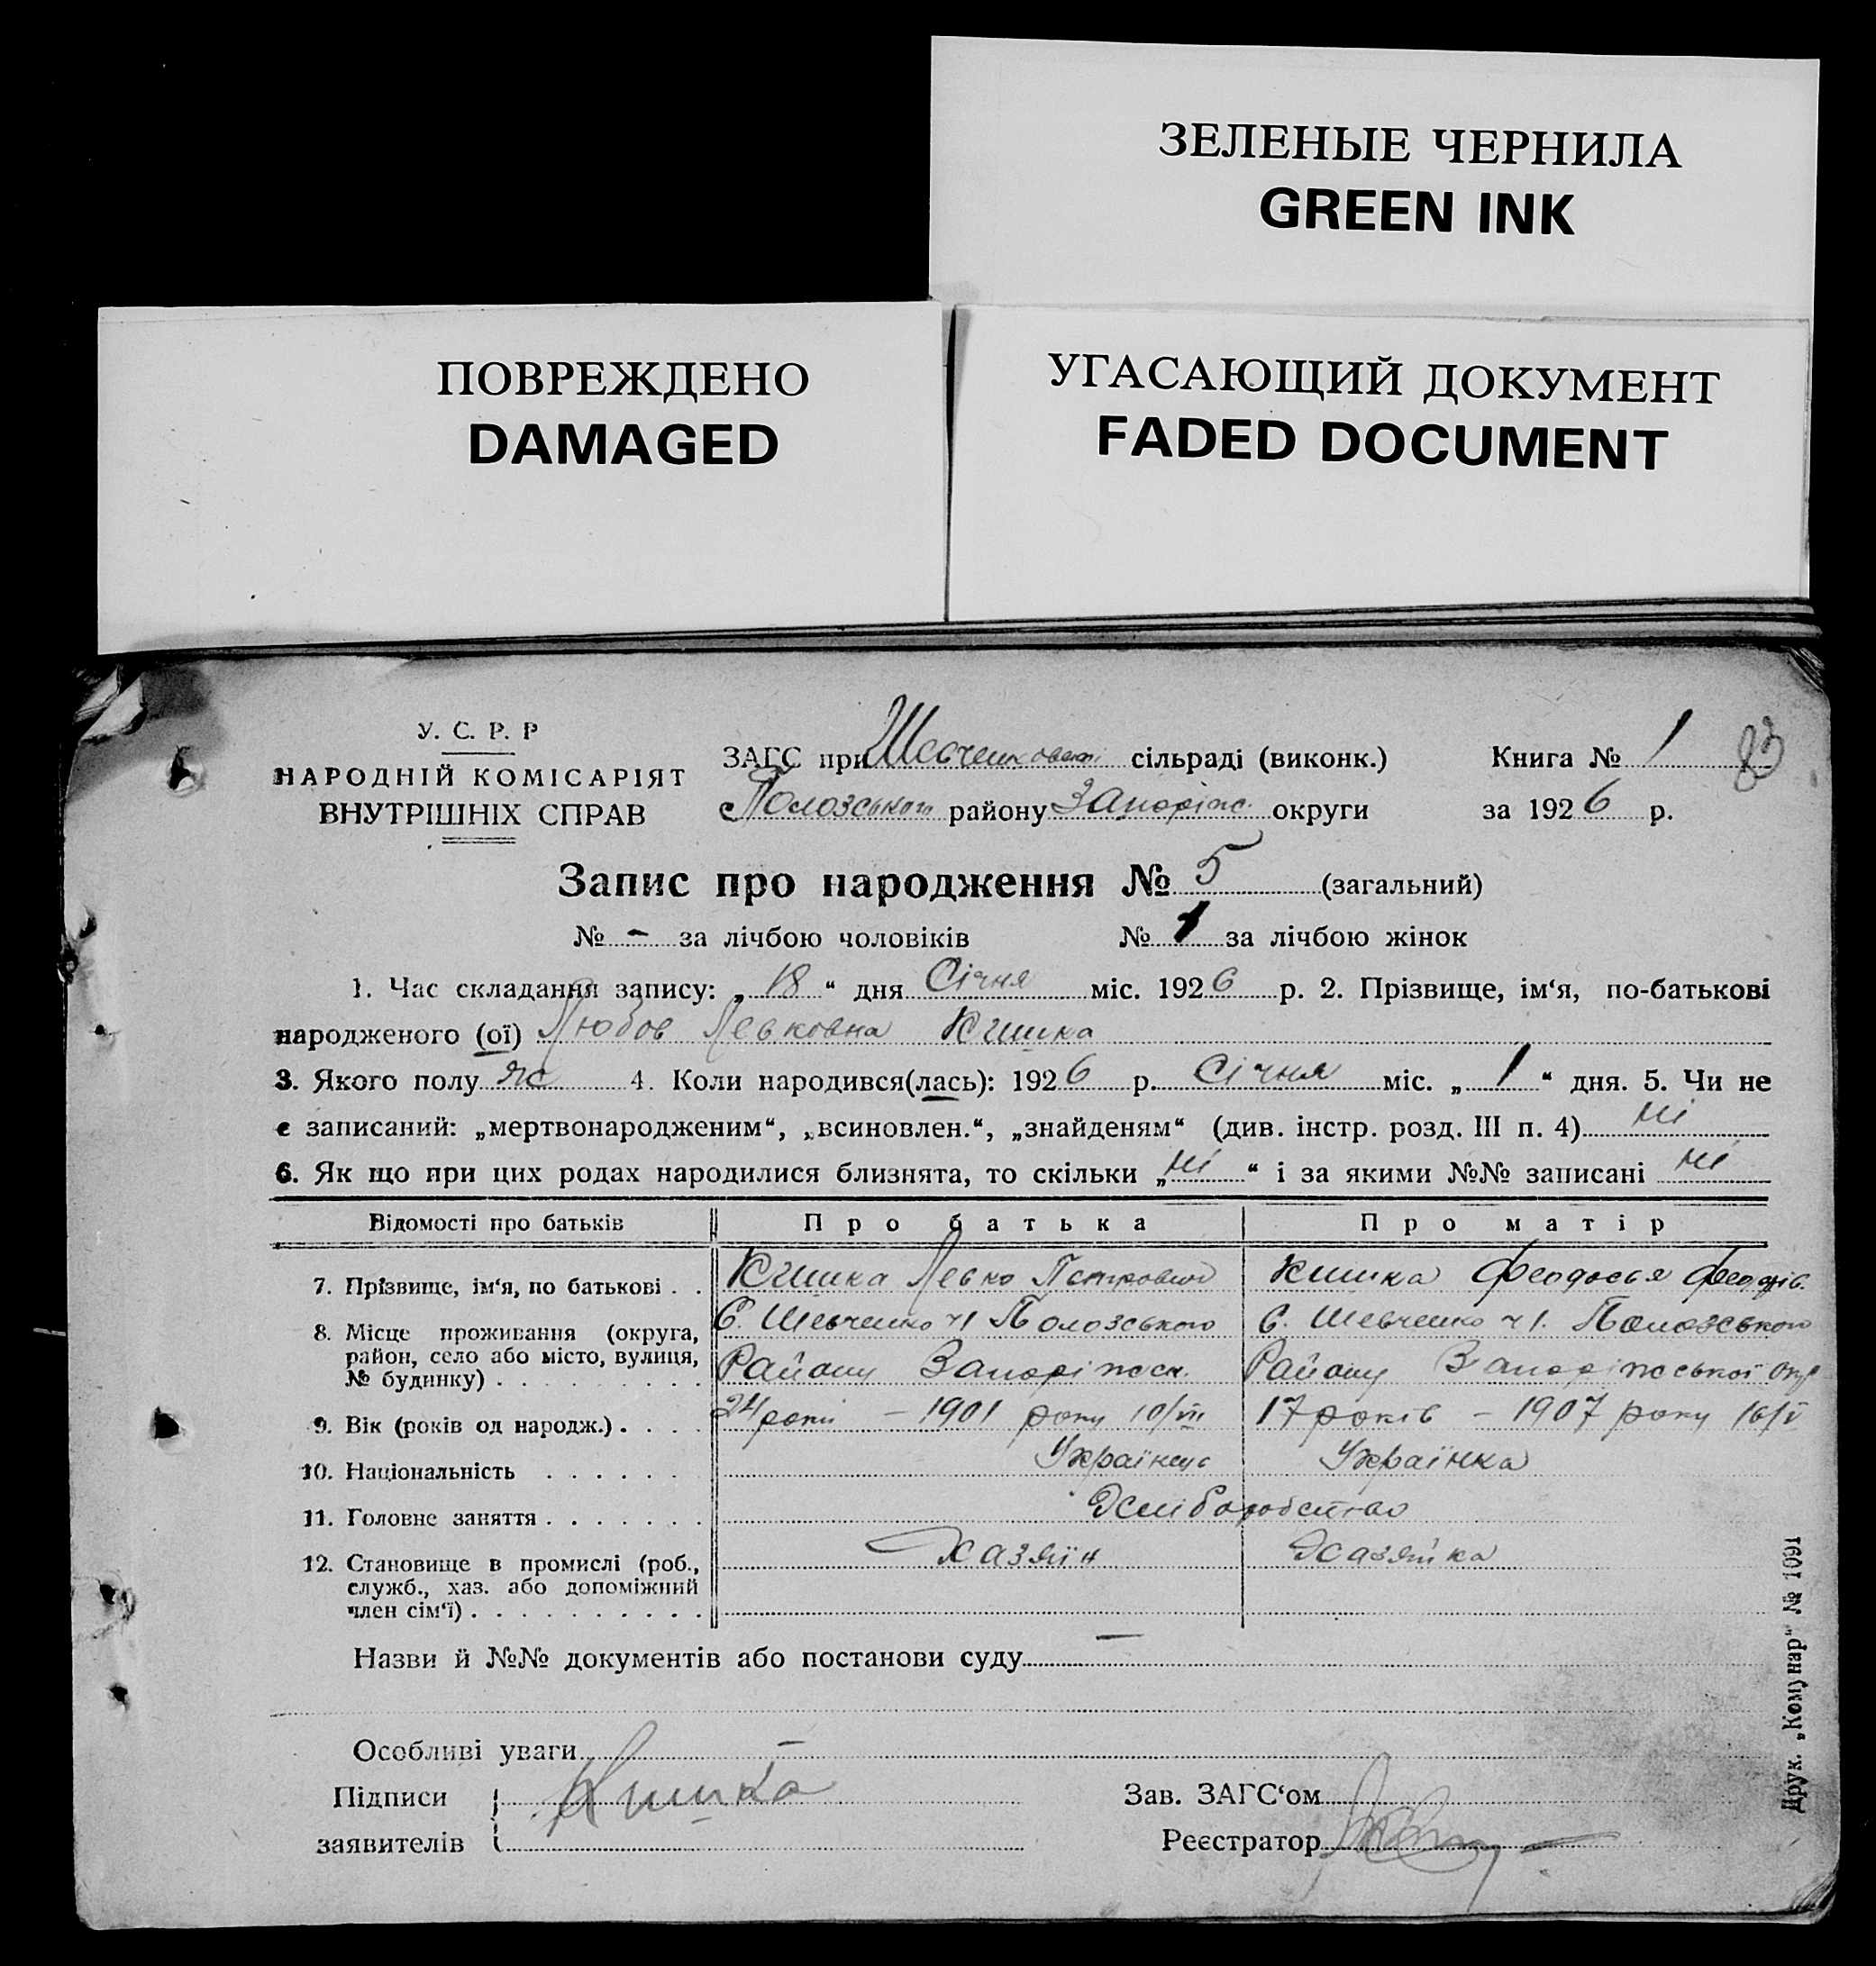 ЗЕЛЕНЫЕ ЧЕРНИЛА
GREEN INK
ПОВРЕЖДЕНО
DAMAGED
УГАСАЮЩИЙ ДОКУМЕНТ
FADED DOCUMENT
У. С. Р. Р
НАРОДНІЙ КОМІСАРІЯТ
ВНУТРІШНІХ СПРАВ
ЗАГС при сільраді (виконк.)
Полозського району Запоріж. округи
Книга № 1 83
за 1926 р.
Запис про народження № 5 (загальний)
№ - за лічбою чоловіків № 1 за лічбою жінок
1. Час складання запису: „ 18 “ дня Січня міс. 1926 р. 2. Прізвище, ім‘я, по-батькові
народженого (ої) Любов Левковна Кишка
3. Якого полу ж 4. Коли народився(лась): 1926 р. Січня міс. „ 1 “ дня. 5. Чи не
є записаний: „мертвонародженим“, „всиновлен.“, „знайденям“ (див. інстр. розд. III п. 4) ні
6. Як що при цих родах народилися близнята, то скільки „ ні “ і за якими №№ записані ні
Відомості про батьків Про батька Про матір
7. Прізвище, ім‘я, по батькові . . Кишка Левко Петрович Кишка Феодосья
8. Місце проживання (округа, С. Шевченко ч1 Полозського С. Шевченко ч1. Полозського
район, село або місто, вулиця, Району Запоріжськ. Району Запоріжської окр
№ будинку) . . . . . . . . .
9. Вік (років од народж.) . . . . 24 роки – 1901 року 10/VII 17 років – 1907 року 16/V
10. Національність . . . . . . Українець Українка
11. Головне заняття . . . . . . . Хліборобство
12. Становище в промислі (роб., Хазяїн Хазяйка
служб., хаз. або допоміжний
член сім‘ї) . . . . . . . . . .
Назви й №№ документів або постанови суду —
Особливі уваги –
Підписи Кишка
заявителів
Зав. ЗАГС‘ом
Реєстратор
Друк. „Комунар“ № 1091